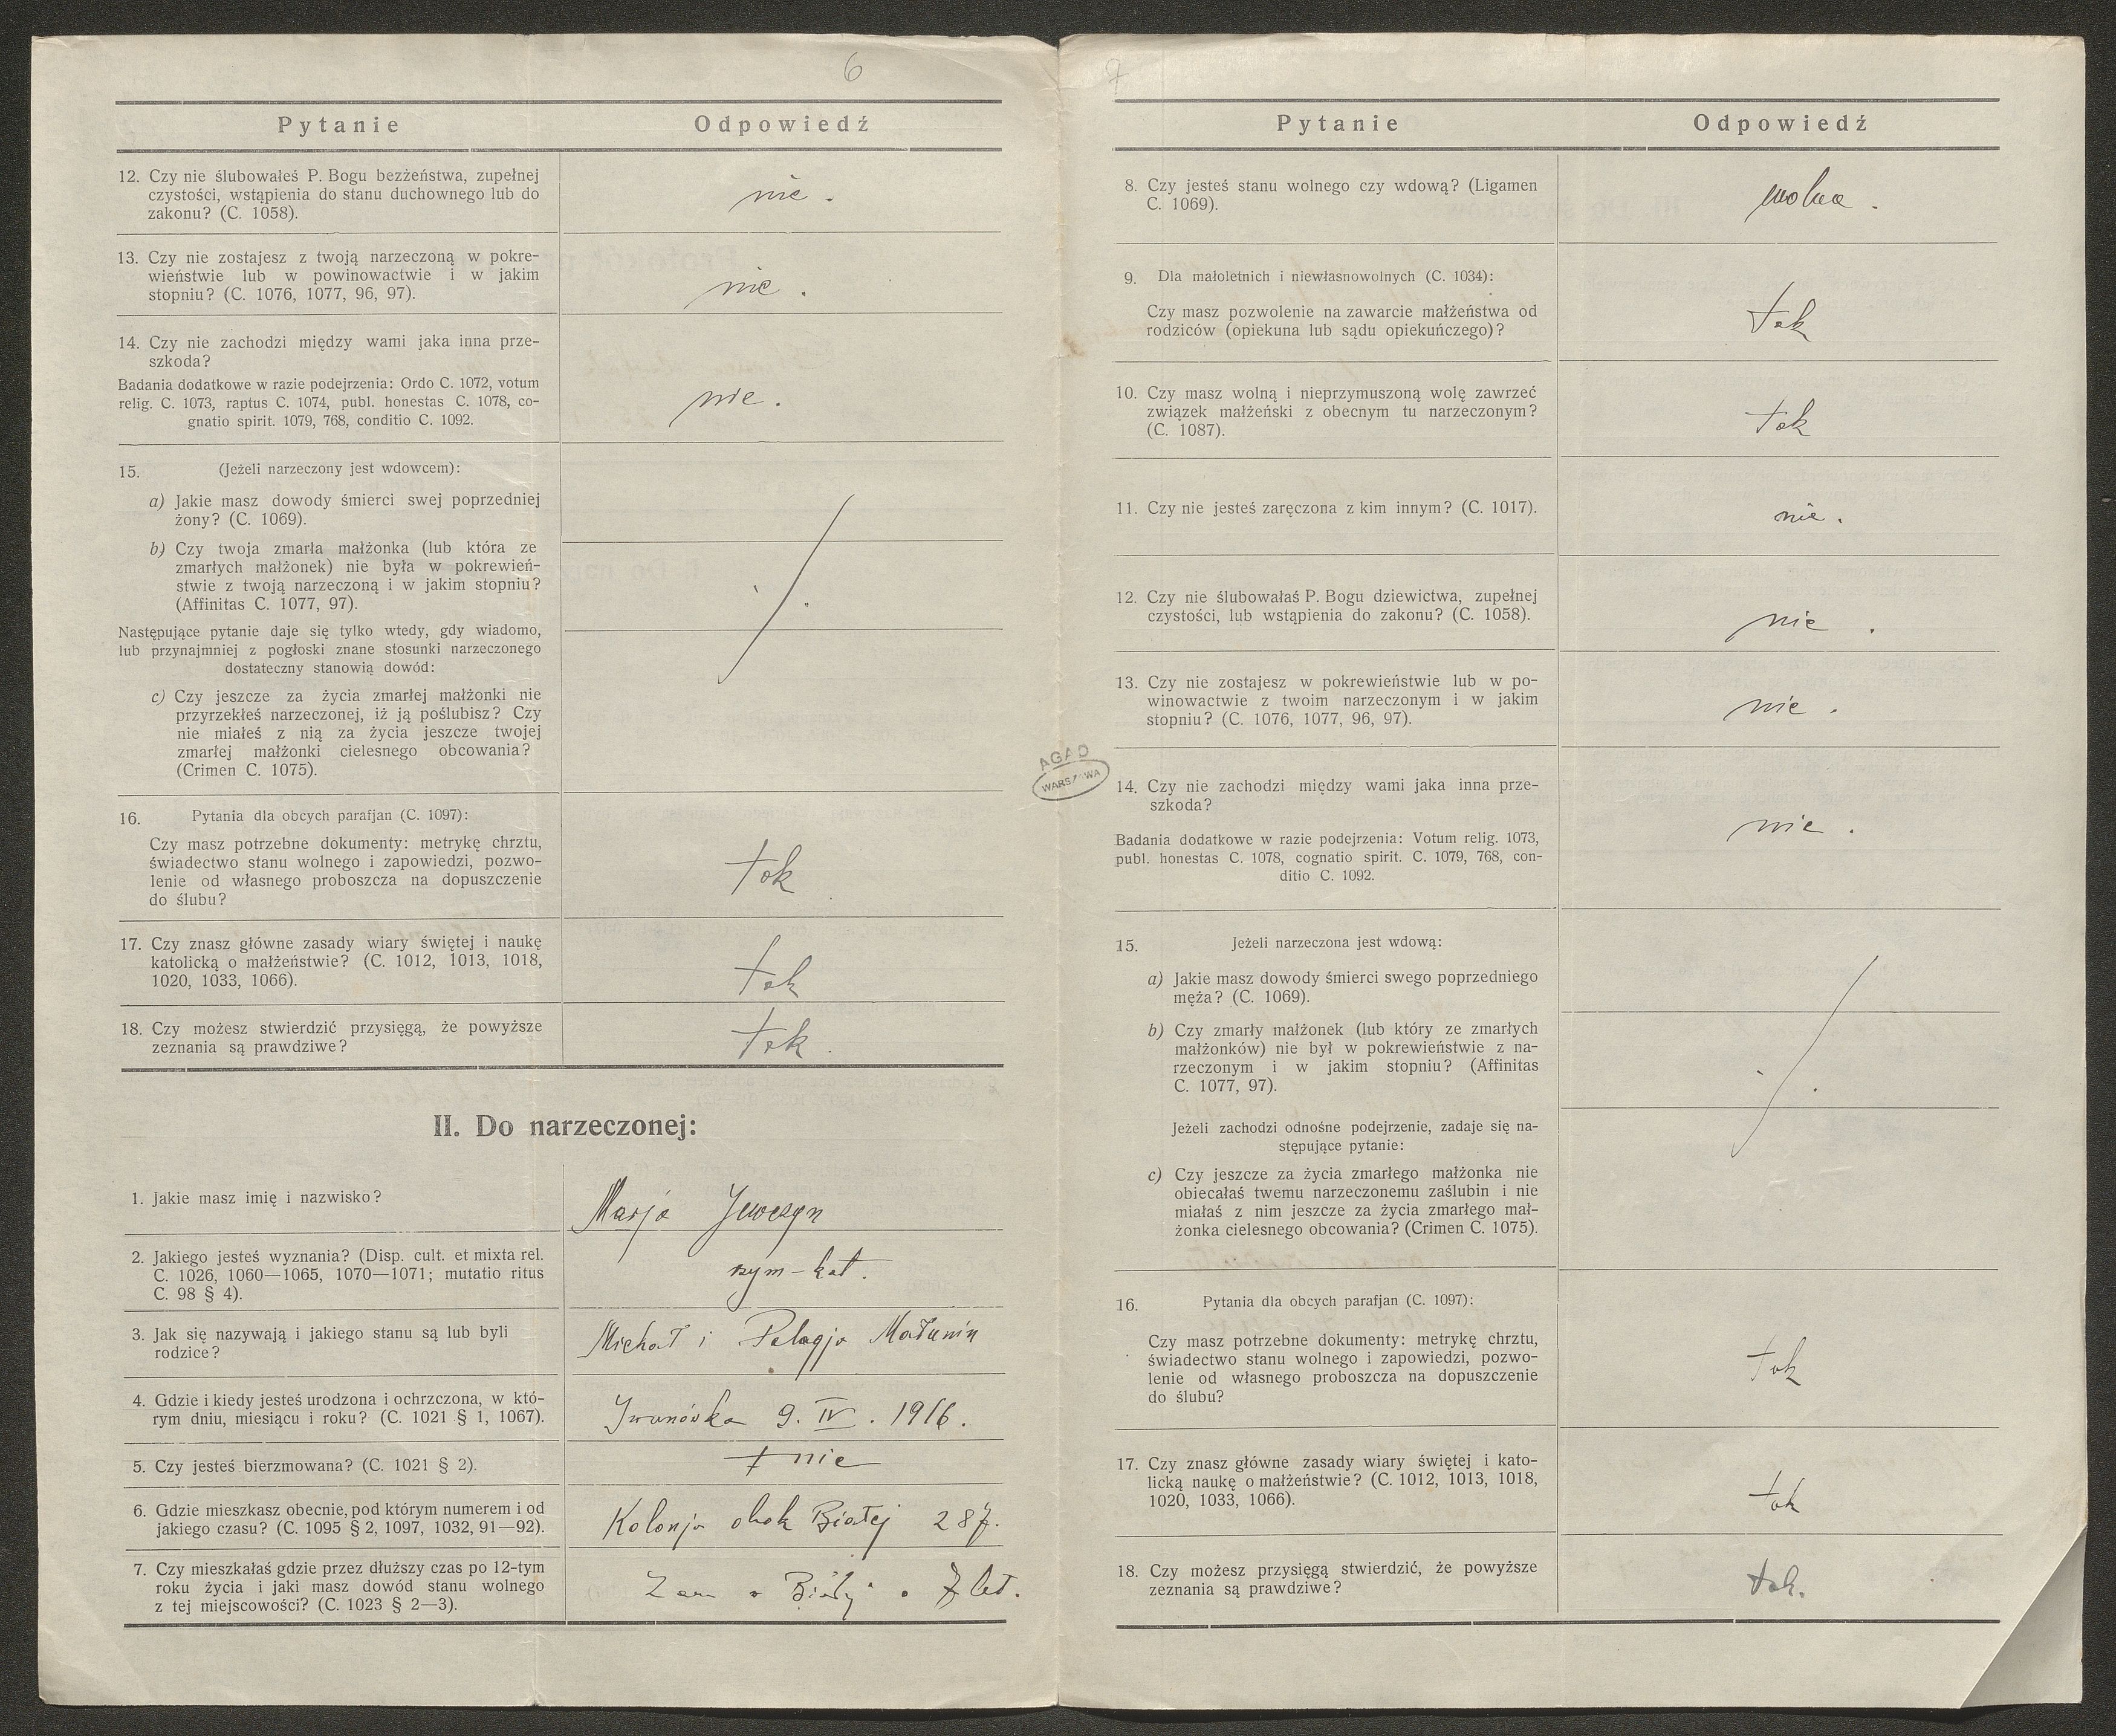 6
Pytanie
Odpowiedź
12. Czy nie ślubowałeś P. Bogu bezżeństwa, zupełnej
czystości, wstąpienia do stanu duchownego lub do
zakonu? (C. 1058).
nie.
13. Czy nie zostajesz z twoją narzeczoną w pokre-
wieństwie lub w powinowactwie i w jakim
stopniu? (C. 1076, 1077, 96, 97).
nie.
14. Czy nie zachodzi między wami jaka inna prze-
szkoda?
Badania dodatkowe w razie podejrzenia: Ordo C. 1072, votum
relig. C. 1073, raptus C. 1074, publ. honestas C. 1078, co-
gnatio spirit. 1079, 768, conditio C. 1092.
nie.
15. (Jeżeli narzeczony jest wdowcem):
a) Jakie masz dowody śmierci swej poprzedniej
żony? (C. 1069).
b) Czy twoja zmarła małżonka (lub która ze
zmarłych małżonek) nie była w pokrewień-
stwie z twoją narzeczoną i w jakim stopniu?
(Affinitas C. 1077, 97).
Następujące pytanie daje się tylko wtedy, gdy wiadomo,
lub przynajmniej z pogłoski znane stosunki narzeczonego
dostateczny stanowią dowód:
c) Czy jeszcze za życia zmarłej małżonki nie
przyrzekłeś narzeczonej, iż ją poślubisz? Czy
nie miałeś z nią za życia jeszcze twojej
zmarłej małżonki cielesnego obcowania?
(Crimen C. 1075).
16. Pytania dla obcych parafjan (C. 1097):
Czy masz potrzebne dokumenty: metrykę chrztu,
świadectwo stanu wolnego i zapowiedzi, pozwo-
lenie od własnego proboszcza na dopuszczenie
do ślubu?
tak
17. Czy znasz główne zasady wiary świętej i naukę
katolicką o małżeństwie? (C. 1012, 1013, 1018,
1020, 1033, 1066).
tak
18. Czy możesz stwierdzić przysięgą, że powyższe
zeznania są prawdziwe?
tak.
II. Do narzeczonej:
1. Jakie masz imię i nazwisko?
Marja
2. Jakiego jesteś wyznania? (Disp. cult. et mixta rel.
C. 1026, 1060—1065, 1070—1071; mutatio ritus
C. 98 § 4).
rzym-kat.
3. Jak się nazywają i jakiego stanu są lub byli
rodzice?
Michał i Pelagja
4. Gdzie i kiedy jesteś urodzona i ochrzczona, w któ-
rym dniu, miesiącu i roku? (C. 1021 § 1, 1067).
Iwanówka 9. IV. 1916.
5. Czy jesteś bierzmowana? (C. 1021 § 2).
nie
6. Gdzie mieszkasz obecnie, pod którym numerem i od
jakiego czasu? (C. 1095 § 2, 1097, 1032, 91—92).
Kolonja obok Białej 287.
7. Czy mieszkałaś gdzie przez dłuższy czas po 12-tym
roku życia i jaki masz dowód stanu wolnego
z tej miejscowości? (C. 1023 § 2—3).
7 let.
7
Pytanie
Odpowiedź
8. Czy jesteś stanu wolnego czy wdową? (Ligamen
C. 1069).
wolna.
9. Dla małoletnich i niewłasnowolnych (C. 1034):
Czy masz pozwolenie na zawarcie małżeństwa od
rodziców (opiekuna lub sądu opiekuńczego)?
tak
10. Czy masz wolną i nieprzymuszoną wolę zawrzeć
związek małżeński z obecnym tu narzeczonym?
(C. 1087).
tak
11. Czy nie jesteś zaręczona z kim innym? (C. 1017).
nie.
12. Czy nie ślubowałaś P. Bogu dziewictwa, zupełnej
czystości, lub wstąpienia do zakonu? (C. 1058).
nie.
13. Czy nie zostajesz w pokrewieństwie lub w po-
winowactwie z twoim narzeczonym i w jakim
stopniu? (C. 1076, 1077, 96, 97).
nie.
AGAD
WARSZAWA
14. Czy nie zachodzi między wami jaka inna prze-
szkoda?
Badania dodatkowe w razie podejrzenia: Votum relig. 1073,
publ. honestas C. 1078, cognatio spirit. C. 1079, 768, con-
ditio C. 1092.
nie.
15. Jeżeli narzeczona jest wdową:
a) Jakie masz dowody śmierci swego poprzedniego
męża? (C. 1069).
b) Czy zmarły małżonek (lub który ze zmarłych
małżonków) nie był w pokrewieństwie z na-
rzeczonym i w jakim stopniu? (Affinitas
C. 1077, 97).
Jeżeli zachodzi odnośne podejrzenie, zadaje się na-
stępujące pytanie:
c) Czy jeszcze za życia zmarłego małżonka nie
obiecałaś twemu narzeczonemu zaślubin i nie
miałaś z nim jeszcze za życia zmarłego mał-
żonka cielesnego obcowania? (Crimen C. 1075).
16. Pytania dla obcych parafjan (C. 1097):
Czy masz potrzebne dokumenty: metrykę chrztu,
świadectwo stanu wolnego i zapowiedzi, pozwo-
lenie od własnego proboszcza na dopuszczenie
do ślubu?
tak
17. Czy znasz główne zasady wiary świętej i kato-
licką naukę o małżeństwie? (C. 1012, 1013, 1018,
1020, 1033, 1066).
tak
18. Czy możesz przysięgą stwierdzić, że powyższe
zeznania są prawdziwe?
tak.